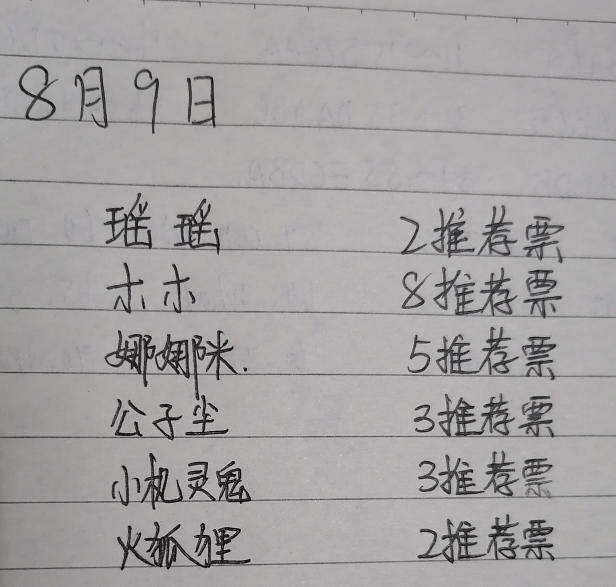 8月9日
瑶瑶 2推荐票
木木 8推荐票
娜娜咪. 5推荐票
公子尘 3推荐票
小机灵鬼 3推荐票
火狐狸 2推荐票